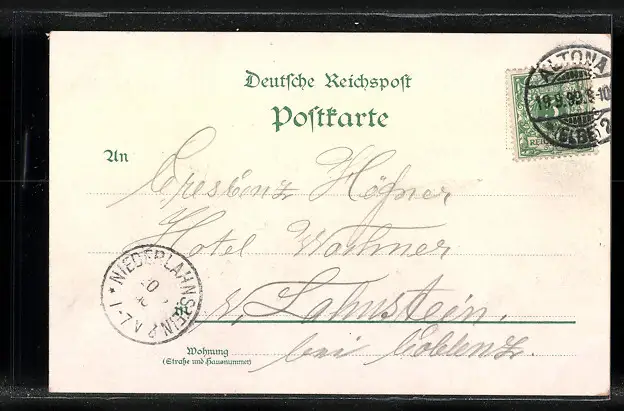 Deutsche Reichspost
Postkarte
ALTONA
19.9.99. 9-10
*(ELBE) 2
REICHS
An
Höfner
Hotel
NIEDERLAHNSTEIN
Lahnstein.
Wohnung
bei Coblenz.
(Straße und Hausnummer)